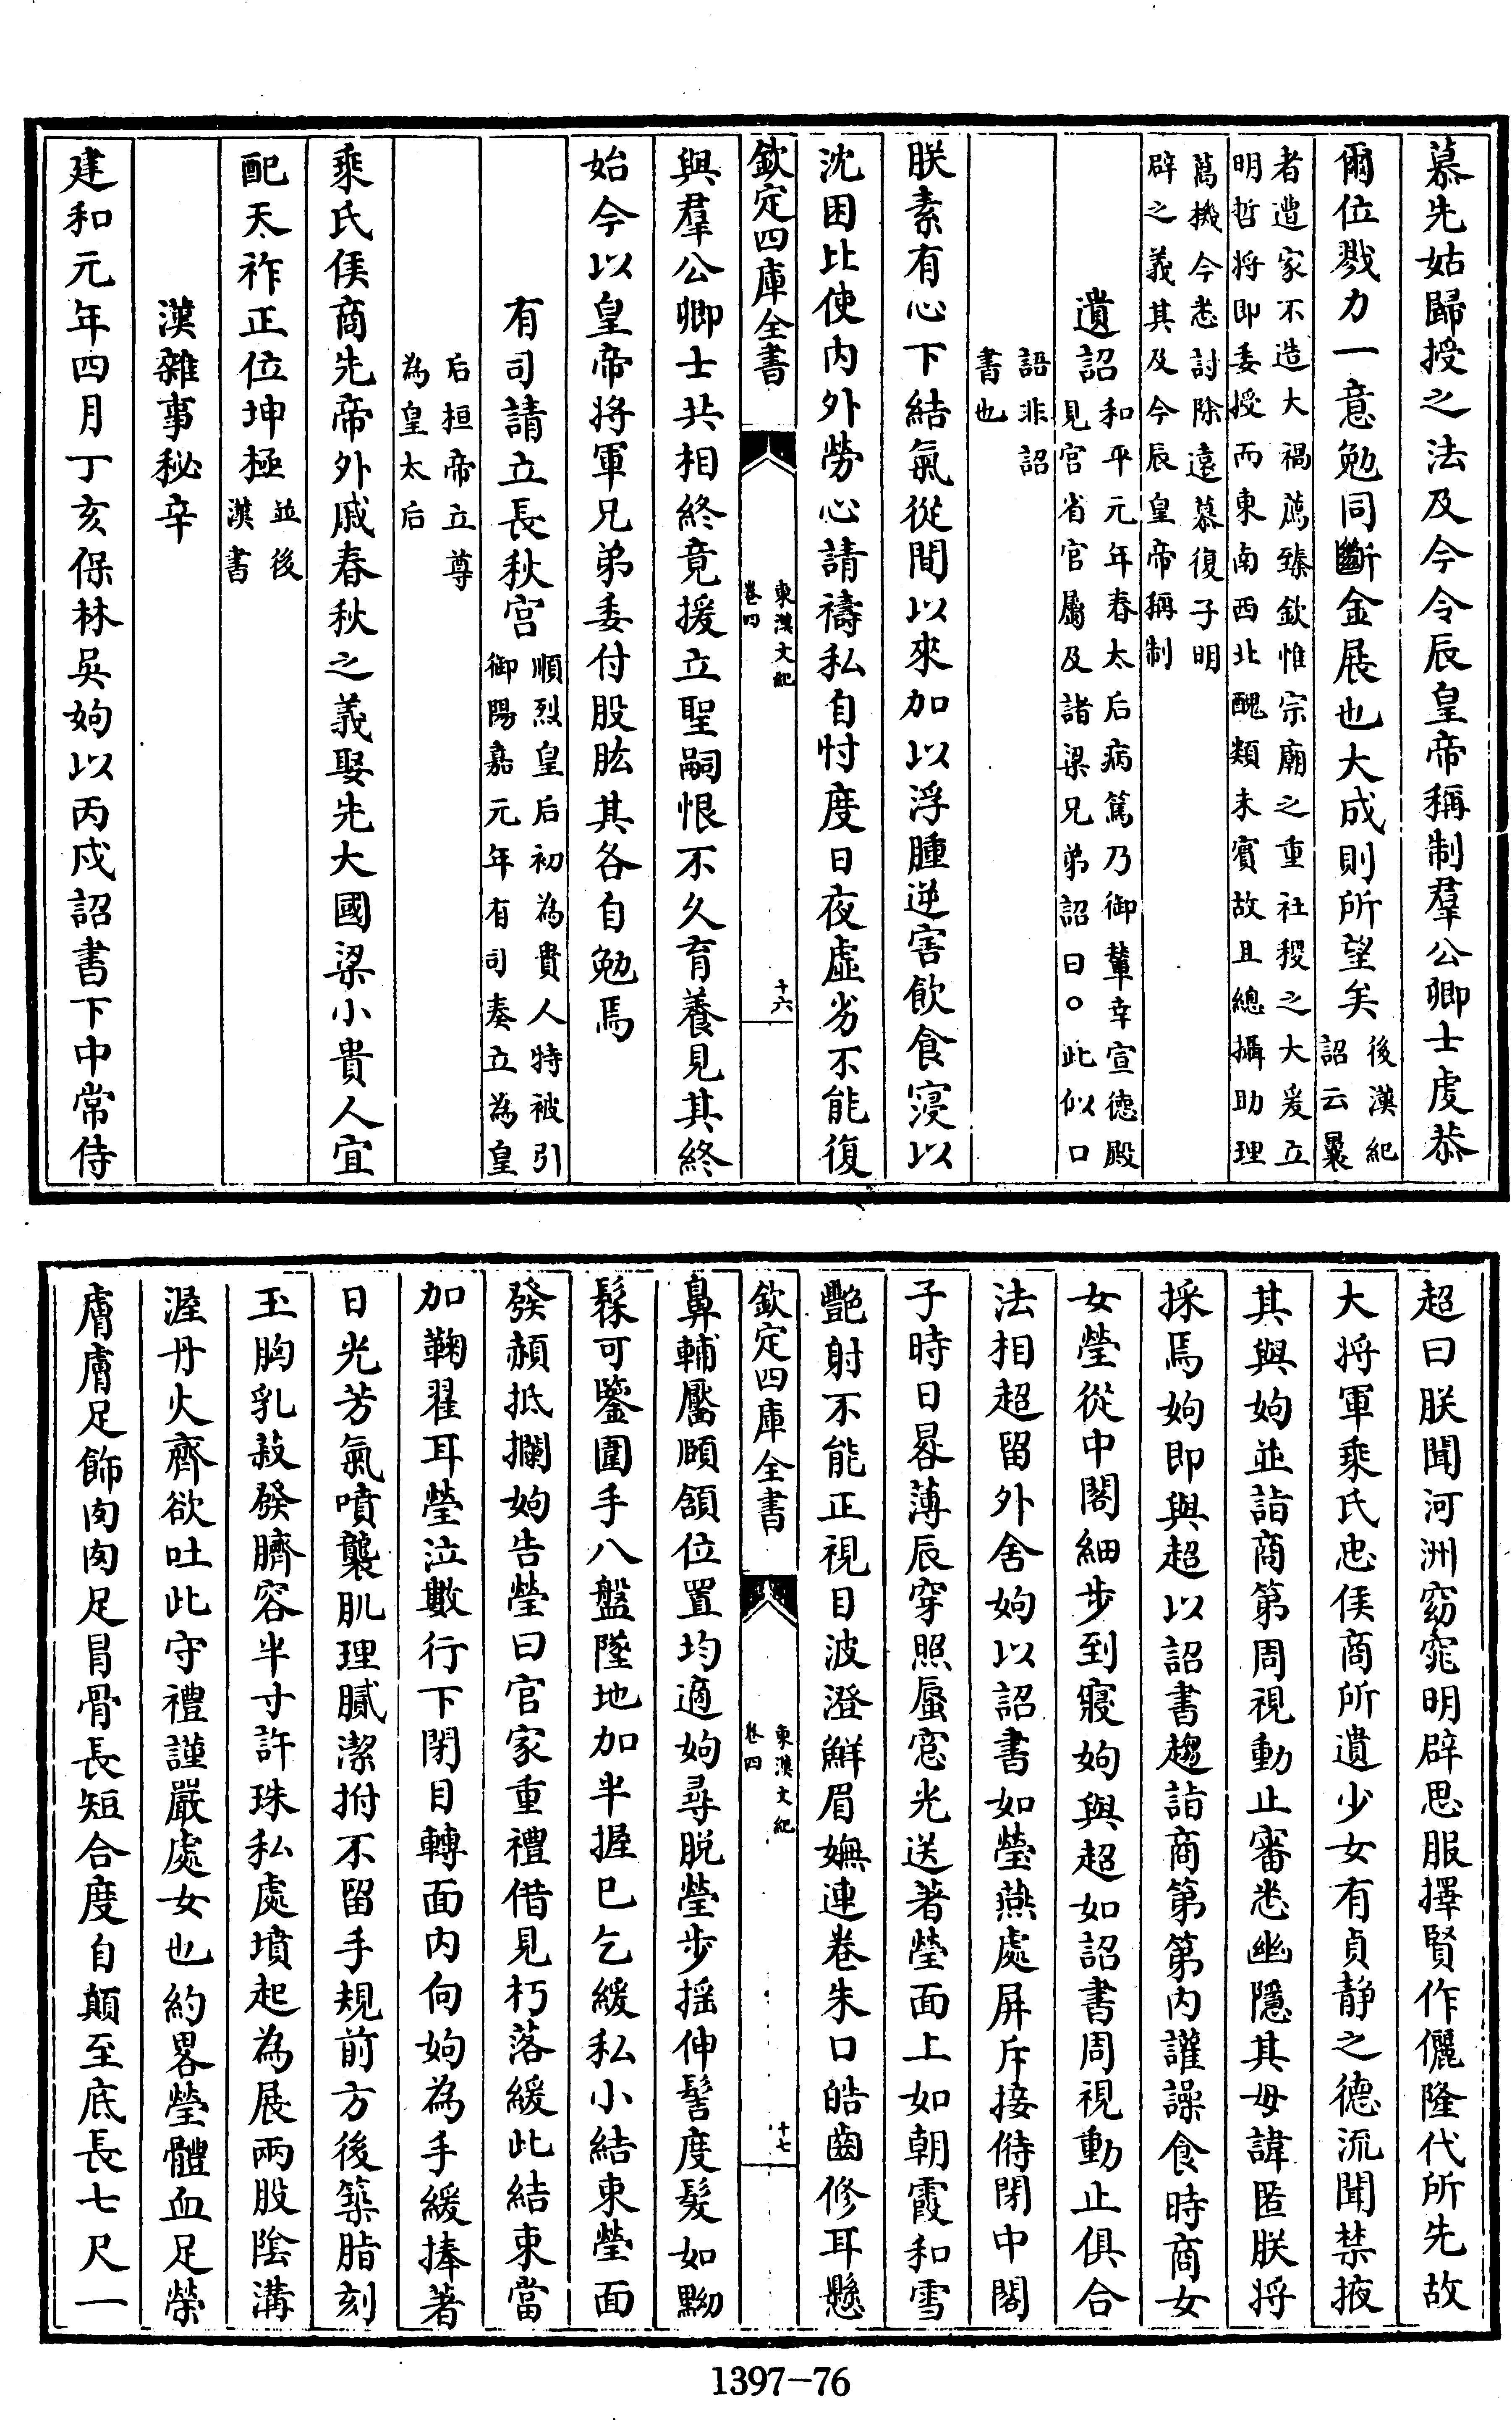 慕先姑歸授之法及今令辰皇帝稱制羣公卿士虔恭
爾位戮力一意勉同斷金展也大成則所望矣後漢紀詔云曩
者遭家不造大禍薦臻欽惟宗廟之重社稷之大爰立
明哲將即委授而東南西北醜類未賓故且總攝助理
萬機今悉討除遠慕復子明
辟之義其及今辰皇帝稱制
遺詔和平元年春太后病篤乃御輦幸宣德殿
見宮省官屬及諸梁兄弟詔曰○此似口
語非詔
書也
朕素有心下結氣從間以來加以浮腫逆害飲食寖以
沈困比使內外勞心請禱私自忖度日夜虛劣不能復
欽定四庫全書
東漢文紀
卷四
十六
與羣公卿士共相終竟援立聖嗣恨不久育養見其終
始今以皇帝將軍兄弟委付股肱其各自勉焉
有司請立長秋宮順烈皇后初為貴人特被引
御陽嘉元年有司奏立為皇
后桓帝立尊
為皇太后
乘氏侯商先帝外戚春秋之義娶先大國梁小貴人宜
配天祚正位坤極並後漢書
漢雜事秘辛
建和元年四月丁亥保林吳姁以丙戌詔書下中常侍
超曰朕聞河洲窈窕明辟思服擇賢作儷隆代所先故
大將軍乘氏忠侯商所遺少女有貞靜之德流聞禁掖
其與姁並詣商第周視動止審悉幽隱其毋諱匿朕將
採焉姁即與超以詔書趨詣商第第內讙譟食時商女
女瑩從中閤細步到寢姁與超如詔書周視動止俱合
法相超留外舍姁以詔書如瑩燕處屏斥接侍閉中閤
子時日晷薄辰穿照蜃窓光送著瑩面上如朝霞和雪
艷射不能正視目波澄鮮眉嫵連卷朱口皓齒修耳懸
欽定四庫全書
東漢文紀
卷四
十七
鼻輔靨頤頷位置均適姁尋脱瑩步搖伸髻度髮如黝
髹可鑒圍手八盤墜地加半握已乞緩私小結束瑩面
發赬抵攔姁告瑩曰官家重禮借見朽落緩此結束當
加鞠翟耳瑩泣數行下閉目轉面內向姁為手緩捧著
日光芳氣噴襲肌理膩潔拊不留手規前方後築脂刻
玉胸乳菽發臍容半寸許珠私處墳起為展兩股陰溝
渥丹火齊欲吐此守禮謹嚴處女也約畧瑩體血足榮
膚膚足飾肉肉足冒骨長短合度自顛至底長七尺一
1397-76